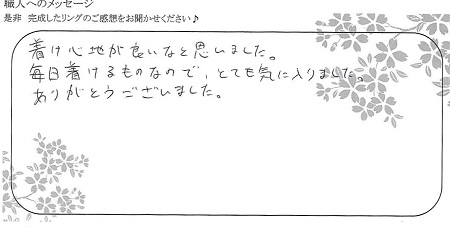 職人へのメッセージ
是非 完成したリングのご感想をお聞かせください♪
着け心地が良いなと思いました。
毎日着けるものなので、とても気に入りました。
ありがとうございました。